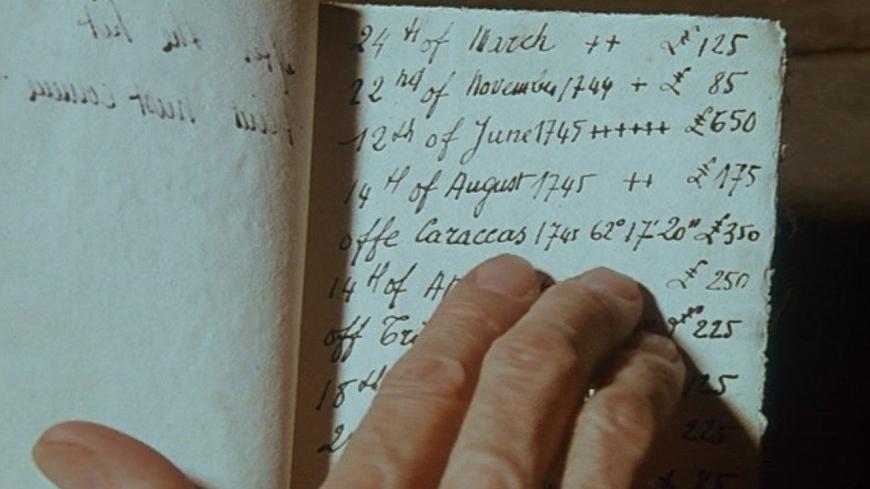 24th of March ++ £ 125
22nd of November 1744 + £ 85
12th of June 1745 ++++++ £650
14th of August 1745 ++ £175
offe Caraccas 1745 62° 17' 20" £350
14th of £ 250
off 225
18th 125
225
85